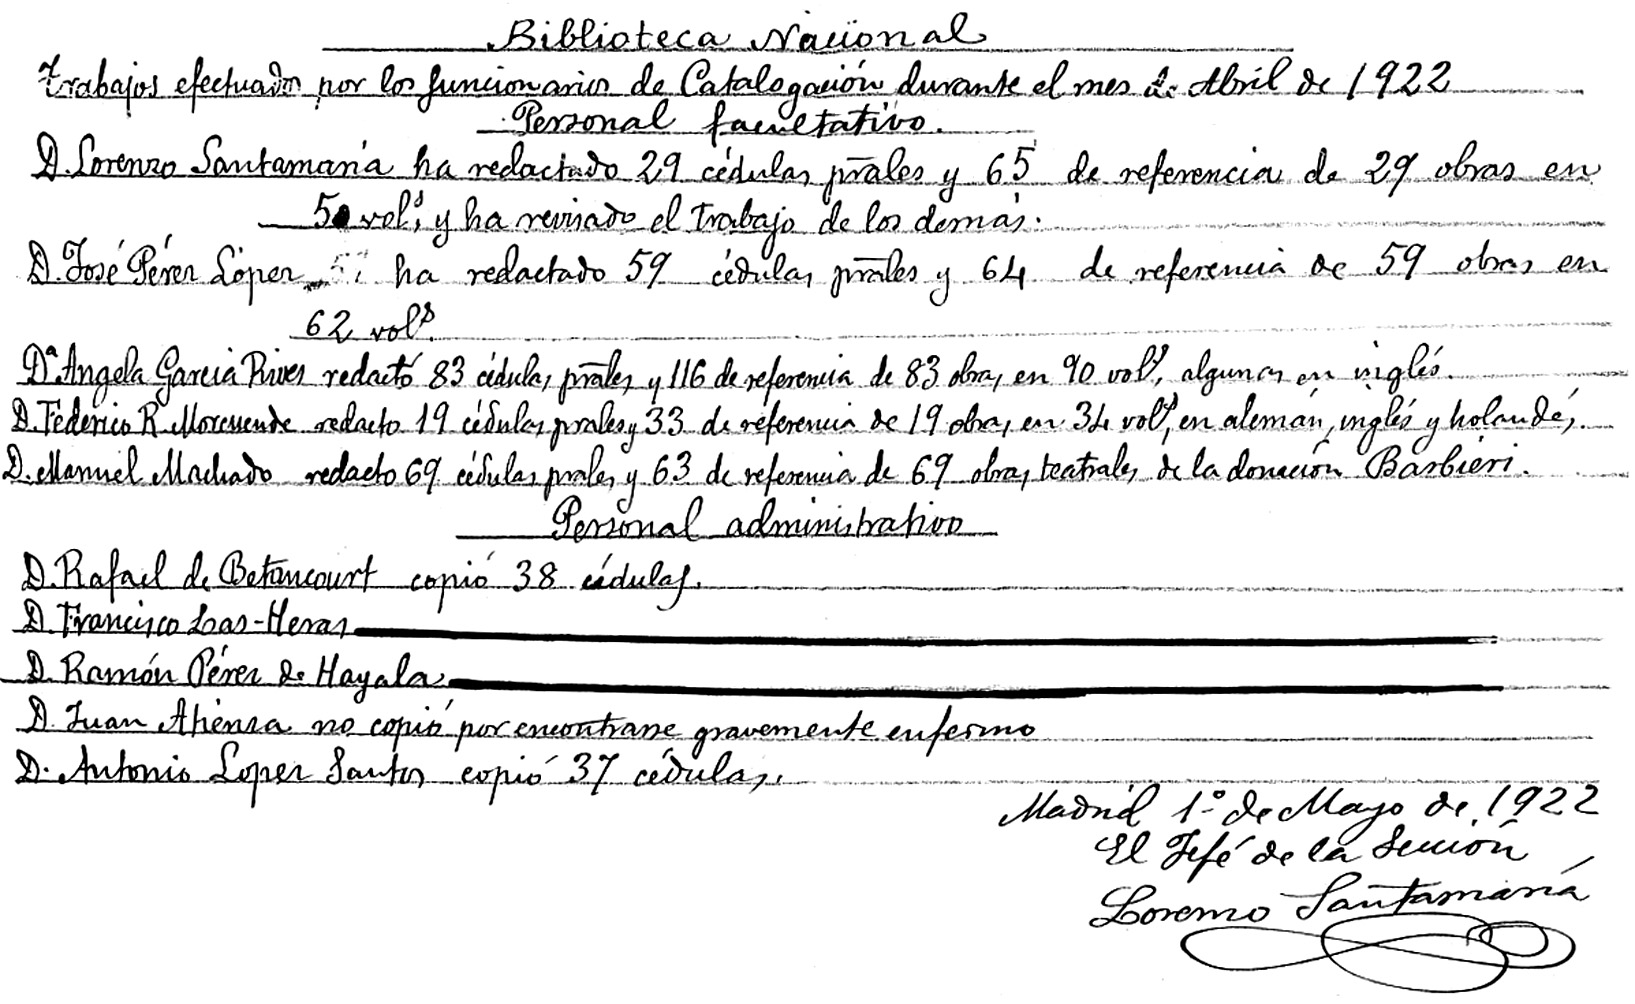 Biblioteca Nacional
Trabajos efectuados por los funcionarios de Catalogación durante el mes de Abril de 1922
Personal facultativo.
D. Lorenzo Santamaría ha redactado 29 cédulas prales y 65 de referencia de 29 obras en
50 vols, y ha revisado el trabajo de los demás.
D. José Pérez López ha redactado 59 cédulas prales y 64 de referencia de 59 obras en
62 vols.
Dª. Angela Garcia Rives redactó 83 cédulas prales y 116 de referencia de 83 obras en 90 vols, algunas en inglés.
D. Federico R. Morcuende redacto 19 cédulas prales y 33 de referencia de 19 obras en 34 vols, en alemán, inglés y holandés.
D. Manuel Machado redacto 69 cédulas prales y 63 de referencia de 69 obras teatrales de la donación Barbieri.
Personal administrativo
D. Rafael de Betancourt copió 38 cédulas.
D. Francisco Las-Heras
D. Ramón Pérez de Hayala
D. Juan Atienza no copió por encontrarse gravemente enfermo
D. Antonio Lopez Santos copió 37 cédulas.
Madrid 1º de Mayo de 1922
El Jefé de la Sección
Lorenzo Santamaría